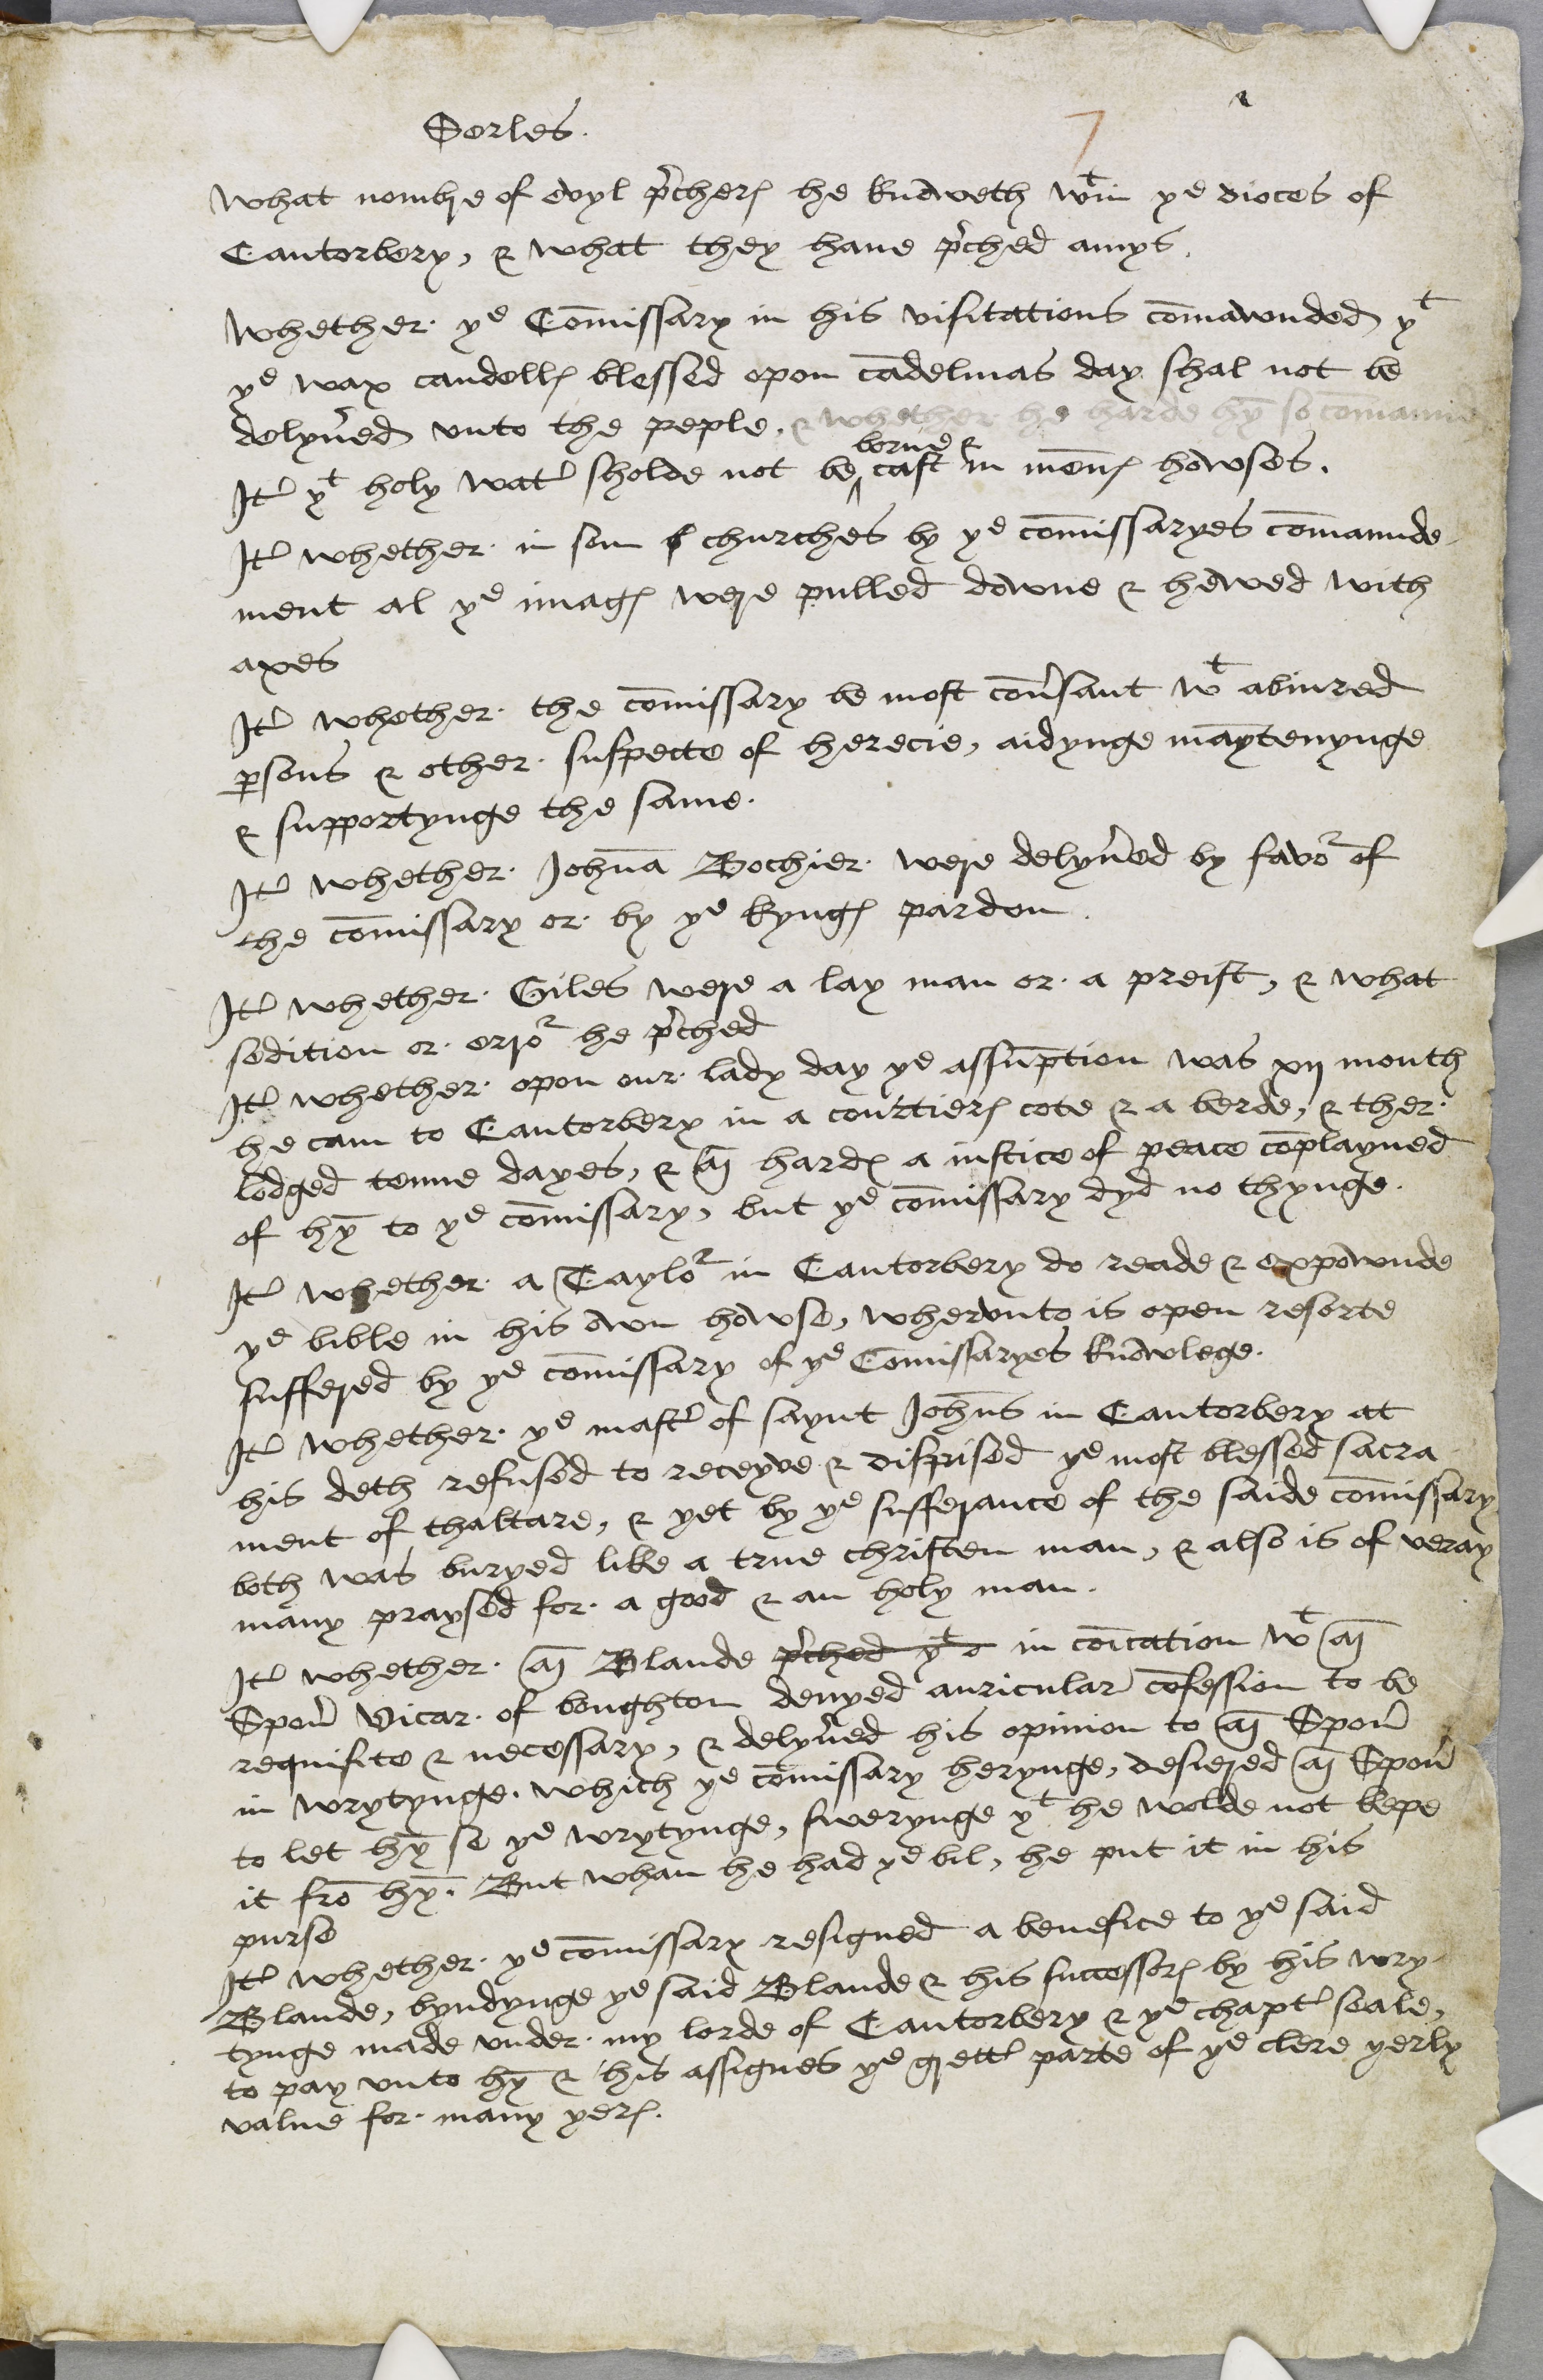 Serles.
7
What nombre of evyl p̃cherꝭ he knoweth wᵗin yᵉ dioces of
Cantorbery, & what they have p̃ched amys.
Whether yᵉ Com̄issary in his visitations com̄awnded yᵗ
yᵉ wax candellꝭ blessed opon cādelmas day shal not be
delyũed unto the peple. & whether he harde hȳ so com̄aunde
It̃ yᵗ holy wat̃ sholde not be ^ borne & cast in menꝭ howses.
It̃ whether in som churches by yᵉ com̄issaryes com̄aunde
ment al yᵉ imagꝭ were pulled downe & hewed with
axes
It̃ whether the com̄issary be most coñsant wᵗ abiured
ꝑsons & other suspecte of herecie, aidynge māytenynge
& supportynge the same.
It̃ whether Johñā Bochier were delyũed by favoʳ of
the com̄issary or by yᵉ kyngꝭ pardon.
It̃ whether Giles were a lay man or a preist, & what
sedition or erroʳ he p̃ched
It̃ whether opon our lady day yᵉ assūption was xij month
he cam to Cantorbery in a courtierꝭ cote & a berde, & ther
lodged tenne dayes, & M hardꝭ a iustice of peace cōplayned
of hȳ to yᵉ com̄issary, but yᵉ com̄issary dyd no thynge.
It̃ whether a Tayloʳ in Cantorbery do reade & expownde
yᵉ bible in his own howse, wherunto is open resorte
suffered by yᵉ com̄issary of yᵉ Com̄issaryes knowlege.
It̃ whether yᵉ mast̃ of saynt Johñs in Cantorbery at
his deth refused to receyve & disprised yᵉ most blessed sacra
ment of thaltare, & yet by yᵉ sufferance of the saide com̄issary
both was buryed like a true christen man, & also is of veray
many praysed for a good & an holy man.
It̃ whether M Blande p̃ched yᵗ in cōīcation wᵗ M
Sponũ Vicar of boughton denyed auricular cōfession to be
requisite & necessary, & delyũed his opinion to M Sponũ
in wrytynge. which yᵉ com̄issary herynge, desiered M Sponũ
to let hȳ se yᵉ wrytynge, swerynge yᵗ he wolde not kepe
it frō hȳ. But whan he had yᵉ bil, he put it in his
purse
It̃ whether yᵉ com̄issary resigned a benefice to yᵉ said
Blande, byndynge yᵉ said Blande & his successorꝭ by his wry
tynge made under my lorde of Cantorbery & yᵉ chapt̃ seale,
to pay unto hȳ & his assignes yᵉ grett̃ parte of yᵉ clere yerly
value for many yerꝭ.